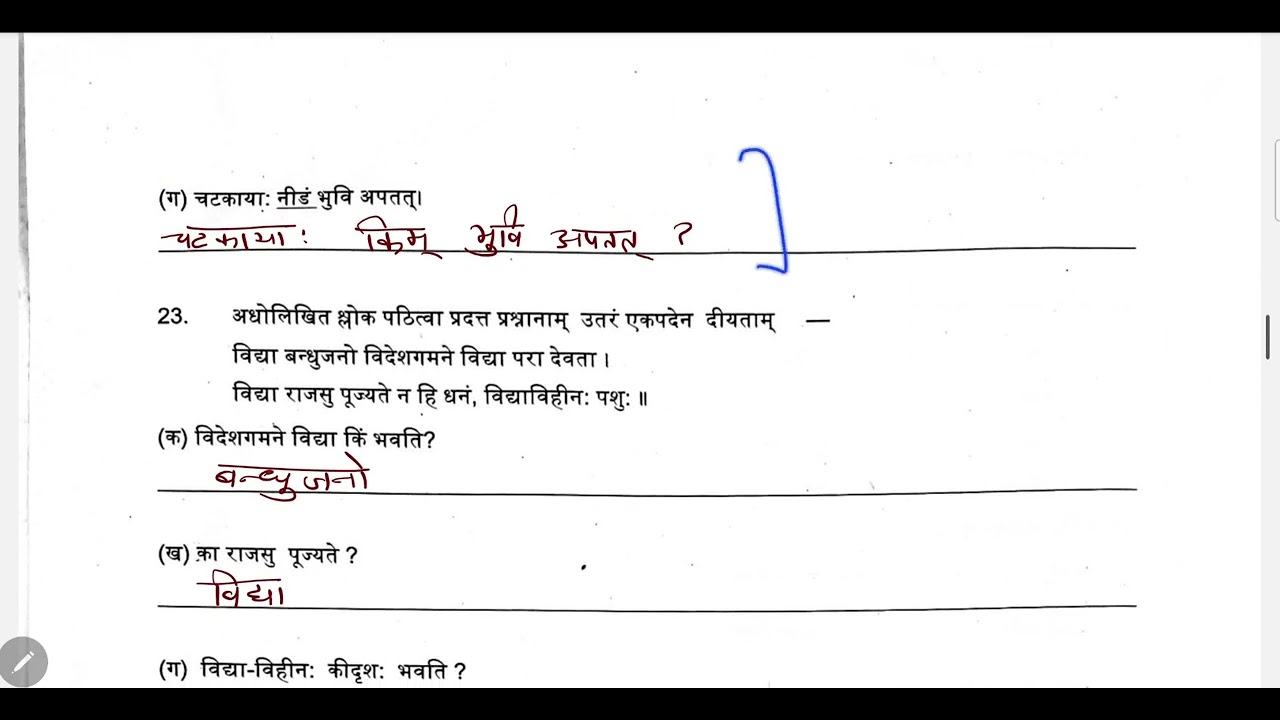 (ग) चटकाया: नीडं भुवि अपतत्।
चटकाया: किम् भुवि अपतत् ?
23. अधोलिखित श्लोक पठित्वा प्रदत्त प्रश्नानाम् उतरं एकपदेन दीयताम् —
विद्या बन्धुजनो विदेशगमने विद्या परा देवता ।
विद्या राजसु पूज्यते न हि धनं, विद्याविहीन: पशु: ॥
(क) विदेशगमने विद्या किं भवति?
बन्धुजनो
(ख) का राजसु पूज्यते ?
विद्या
(ग) विद्या-विहीन: कीदृश: भवति ?